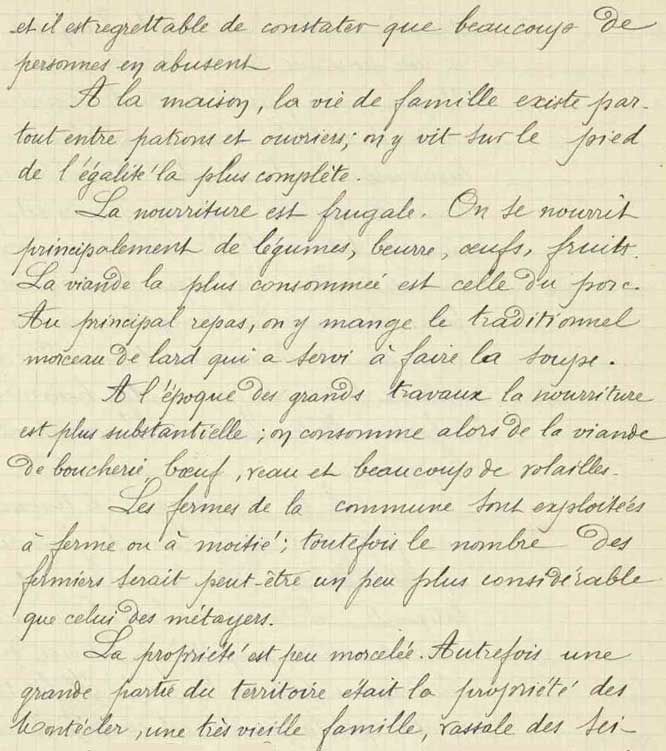 et il est regrettable de constater que beaucoup de
personnes en abusent
A la maison, la vie de famille existe par-
tout entre patrons et ouvriers; on y vit sur le pied
de l'égalité la plus complète.
La nourriture est frugale. On se nourrit
principalement de légumes, beurre, œufs, fruits.
La viande la plus consommée est celle du porc.
Au principal repas, on y mange le traditionnel
morceau de lard qui a servi à faire la soupe.
A l'époque des grands travaux la nourriture
est plus substantielle; on consomme alors de la viande
de boucherie, bœuf, veau et beaucoup de volailles.
Les fermes de la commune sont exploitées
à ferme ou à moitié; toutefois le nombre des
fermiers serait peut-être un peu plus considérable
que celui des métayers.
La propriété est peu morcelée. Autrefois une
grande partie du territoire était la propriété des
Montécler, une très vieille famille, vassale des Sei-